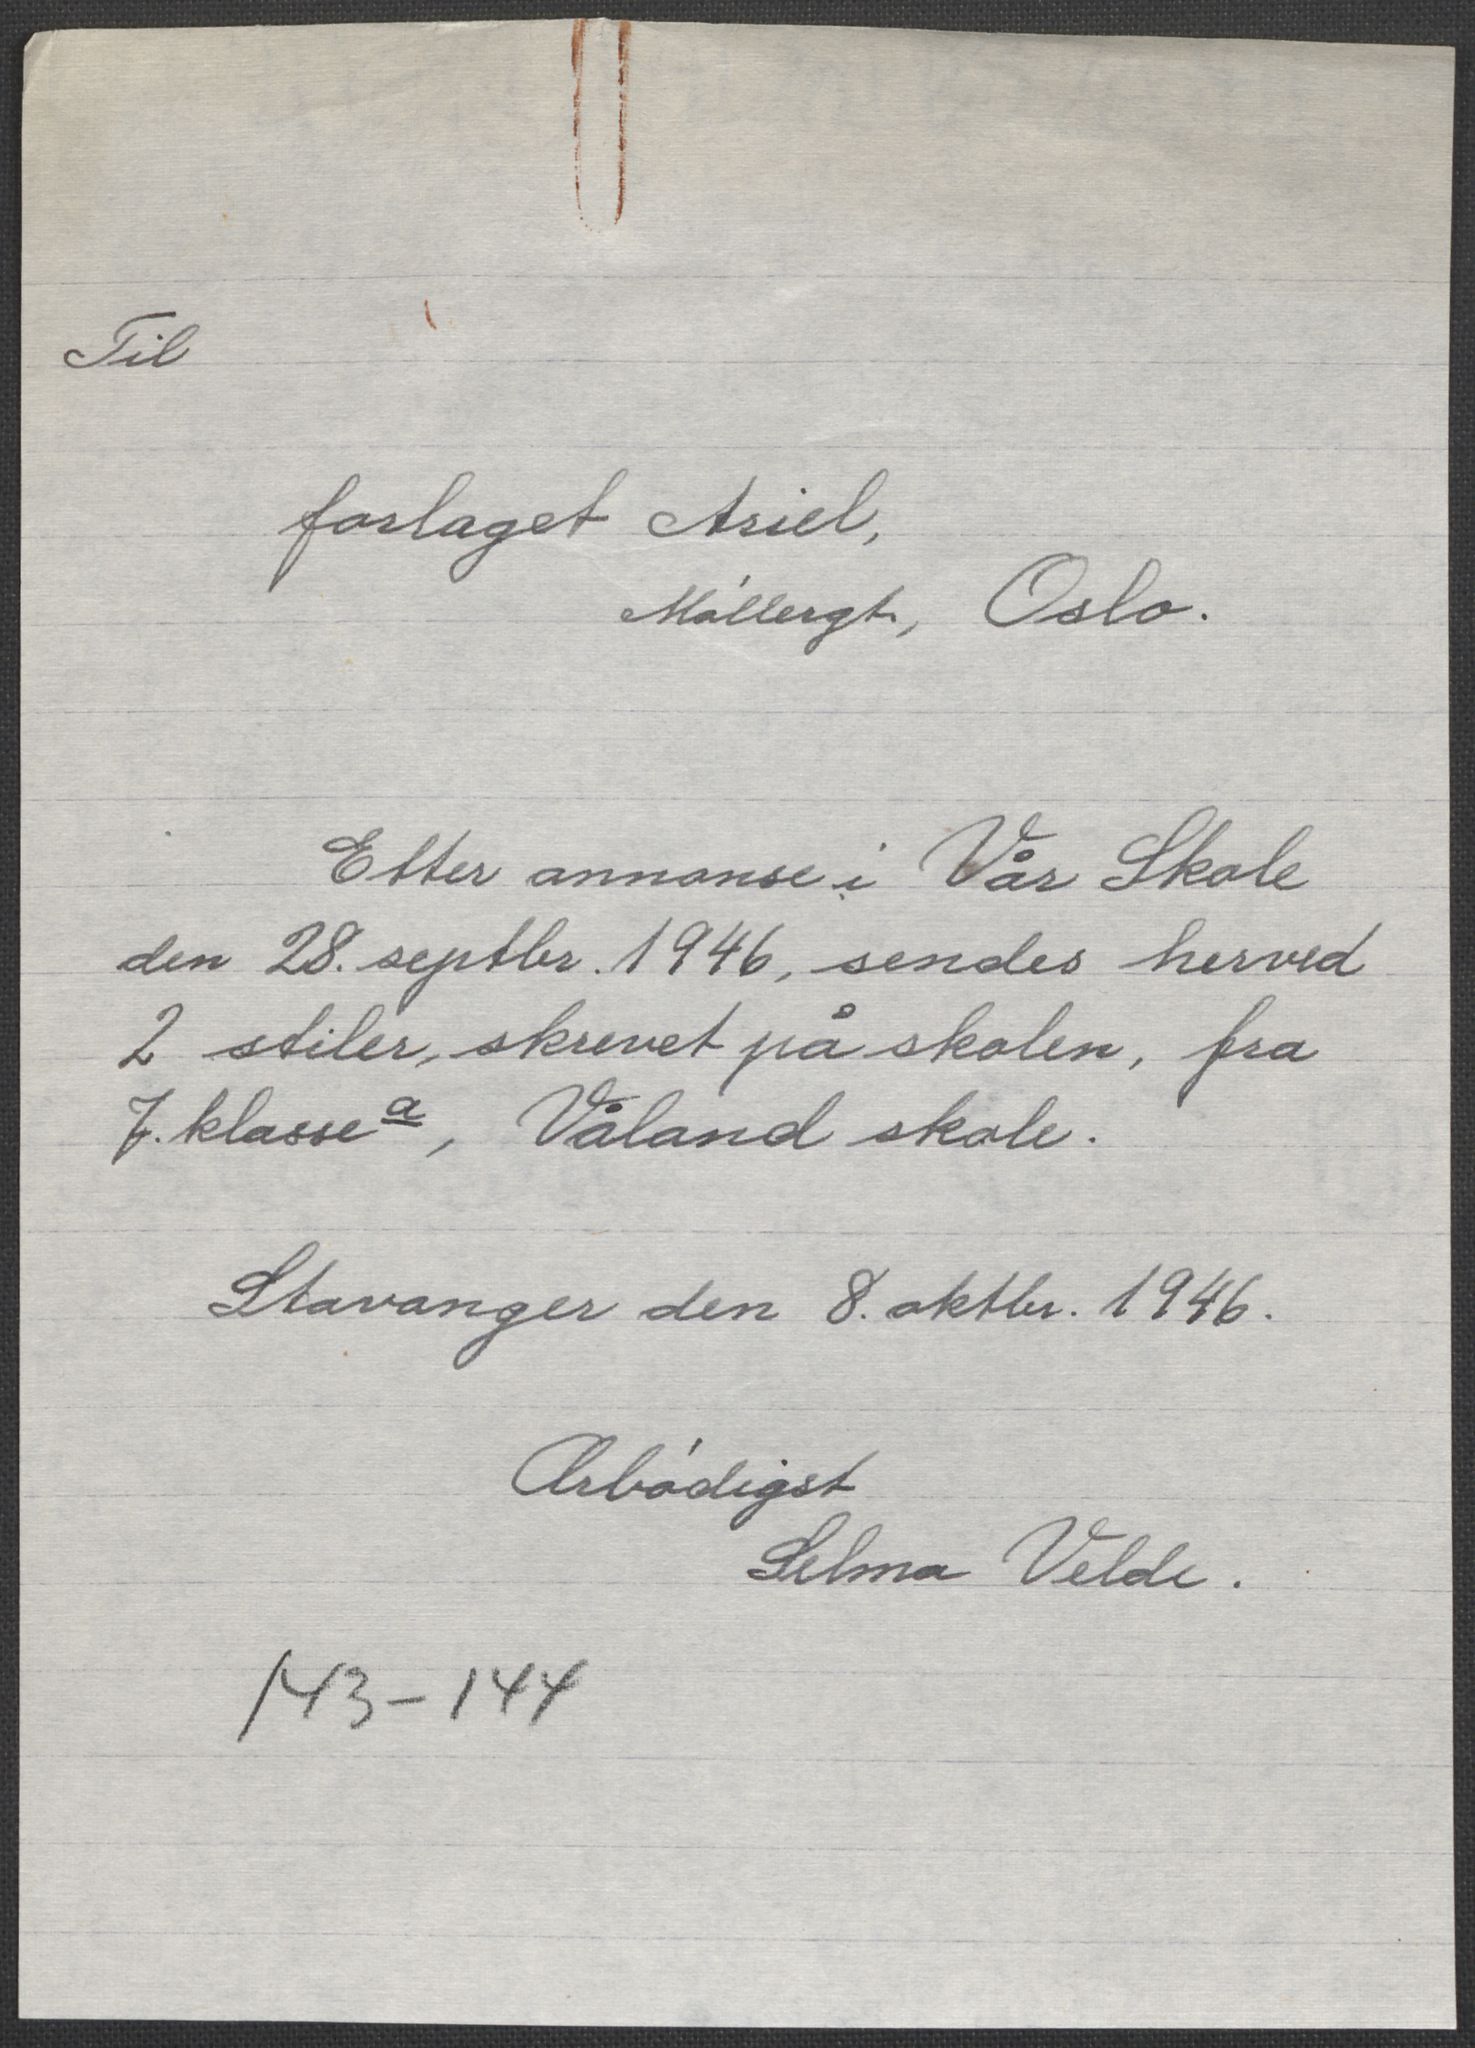 Til
forlaget Ariel,
Møllergt., Oslo.
Etter annonse i Vår Skole
den 28. septbr. 1946, sendes herved
2 stiler, skrevet på skolen, fra
7. klasse a, Våland skole.
Stavanger den 8. oktbr. 1946.
Ærbødigst
Selma Velde.
143-144